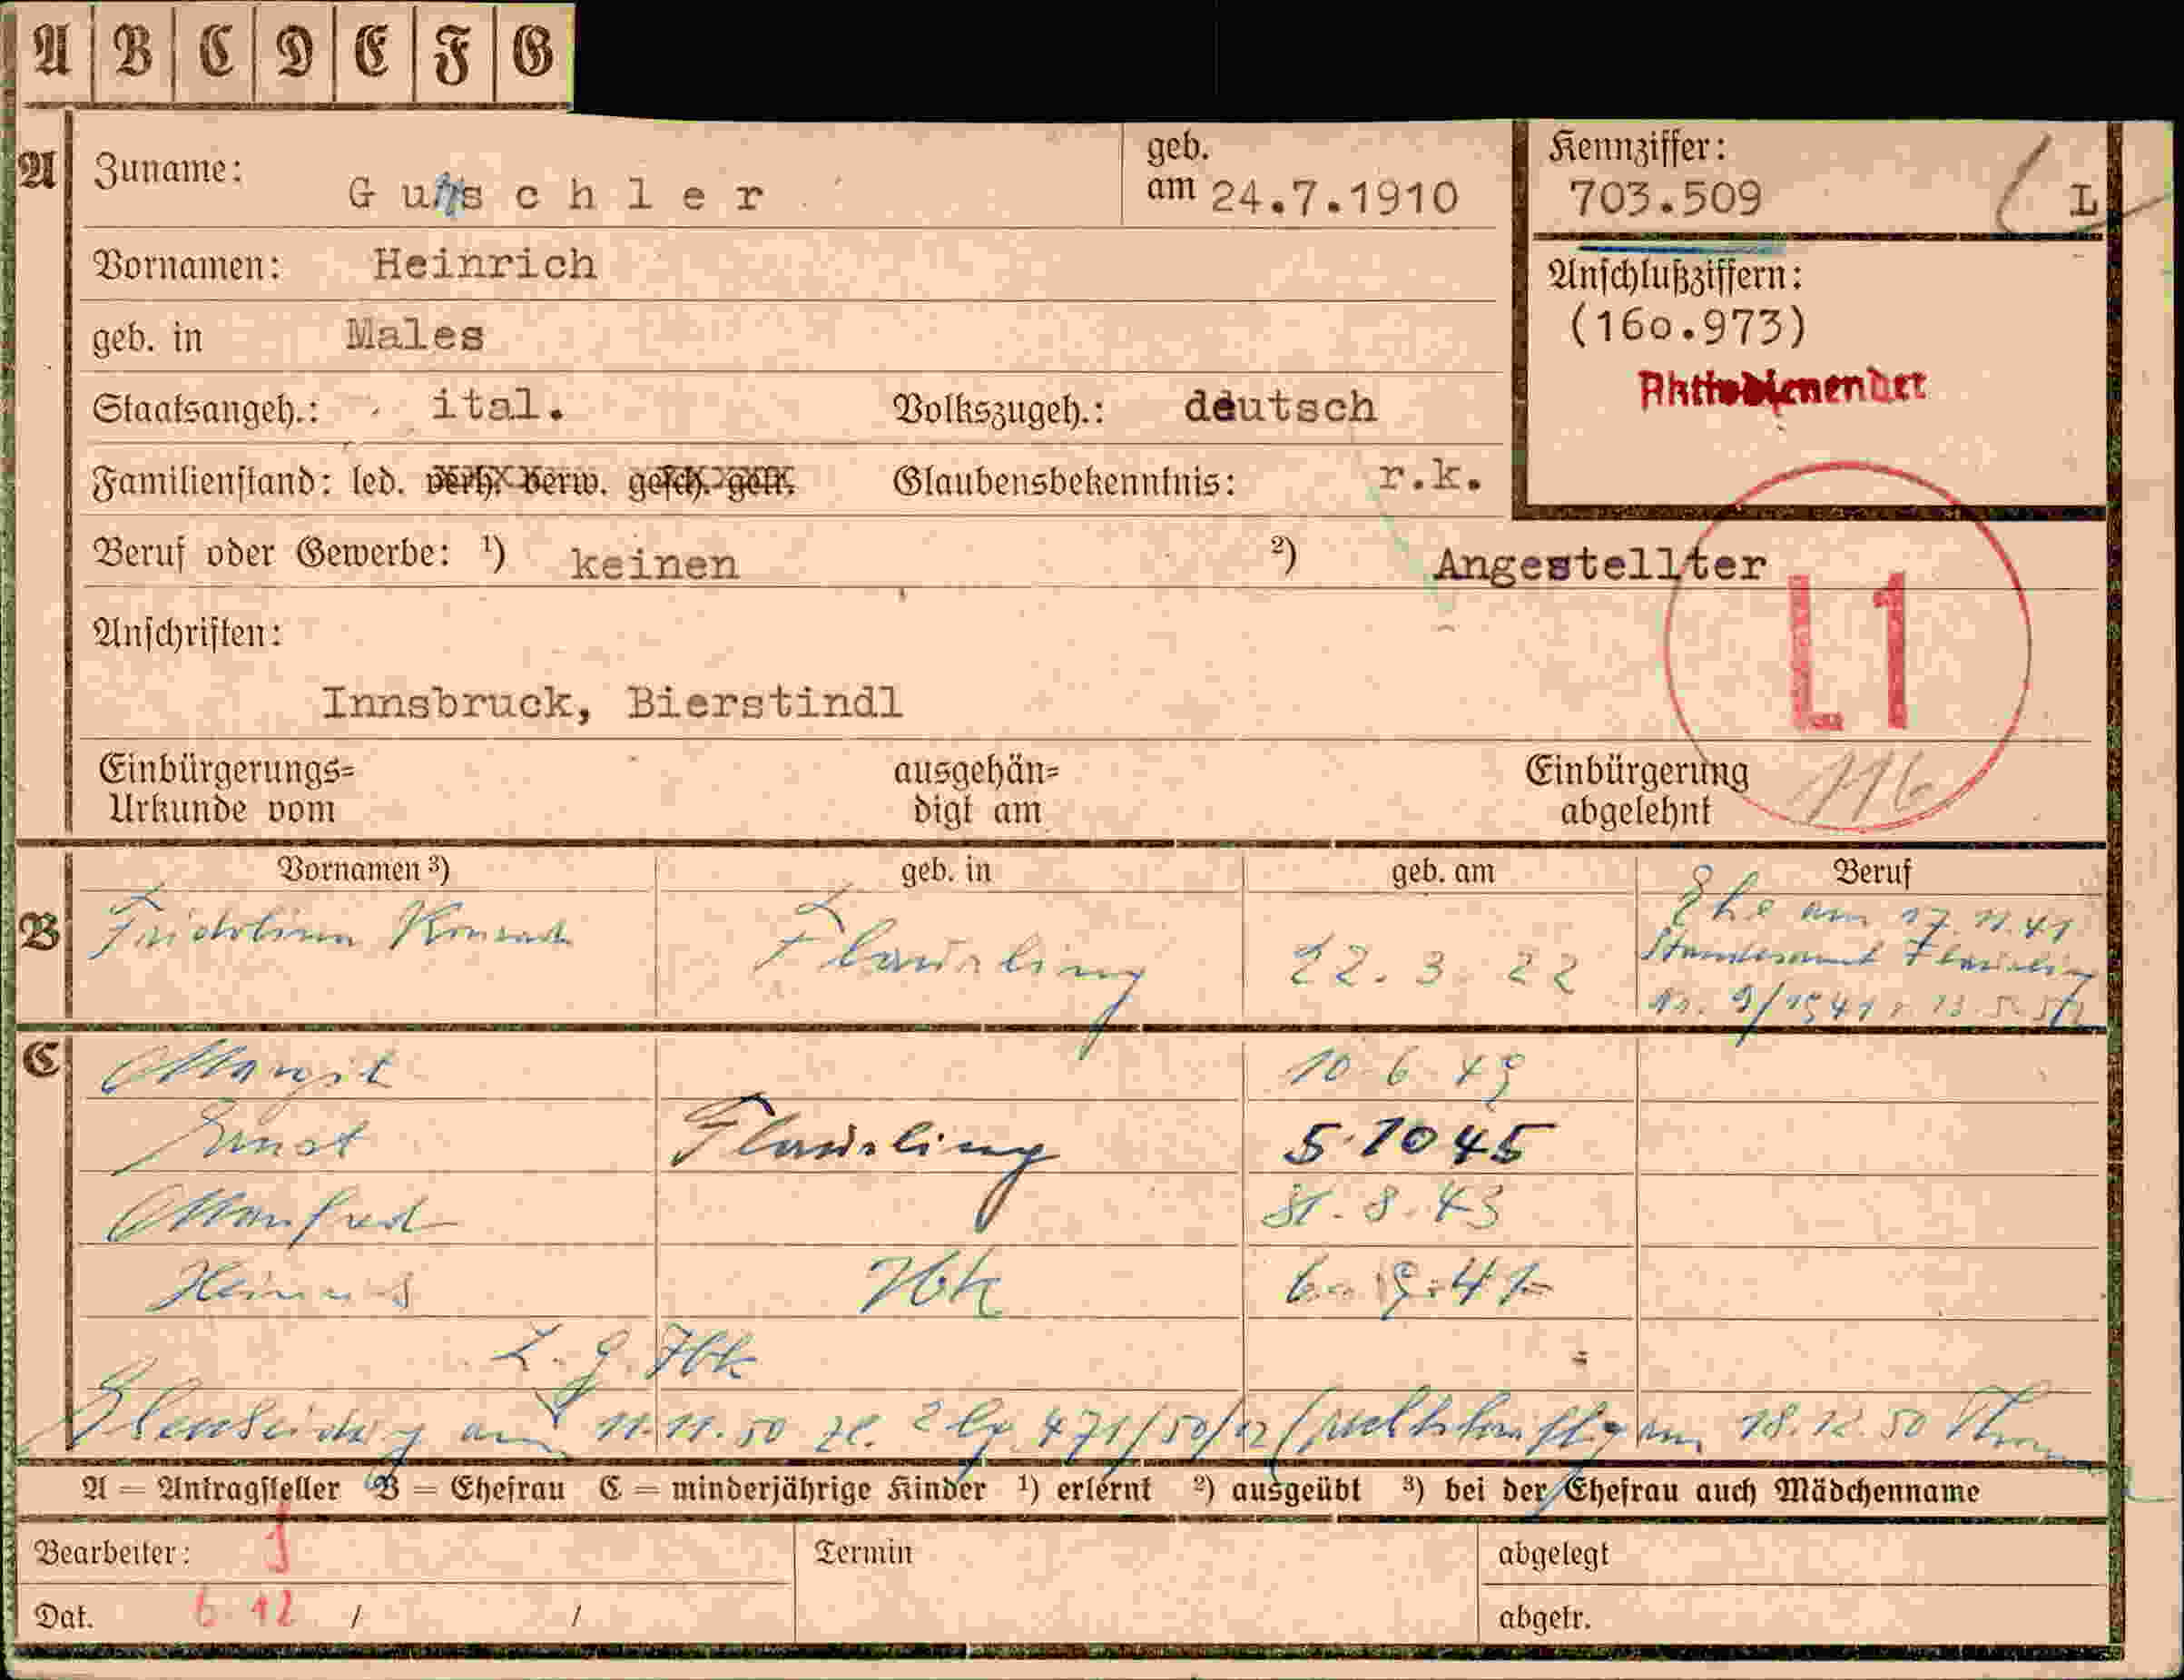 A B C D E F G
A Zuname: Gutschler geb. am 24.7.1910
Kennziffer: 703.509 L
Vornamen: Heinrich
Anschlußziffern: (160.973)
geb. in Males
Staatsangeh.: ital. Volkszugeh.: deutsch
Familienstand: led. verh. verw. gesch. getr. Glaubensbekenntnis: r.k.
Beruf oder Gewerbe: ¹) keinen ²) Angestellter
L1
Anschriften:
Innsbruck, Bierstindl
Einbürgerungs= Urkunde vom ausgehän= digt am Einbürgerung abgelehnt 116
Vornamen ³) geb. in geb. am Beruf
B Fridolina Flaurling 22. 3. 22 Ehe am 17.11.41
Standesamt Flaurling
Nr. 9/1941
C Margit 10. 6. 49
Ernst Flaurling 5.10 45
Manfred 31. 8. 43
Ibk
L. G. Ibk
am 11.11.50 471/50/12 (rechtskräftig am 18.12.50
A = Antragsteller B = Ehefrau C = minderjährige Kinder ¹) erlernt ²) ausgeübt ³) bei der Ehefrau auch Mädchenname
Bearbeiter: Termin abgelegt
Dat. 6. 12 / / abgetr.